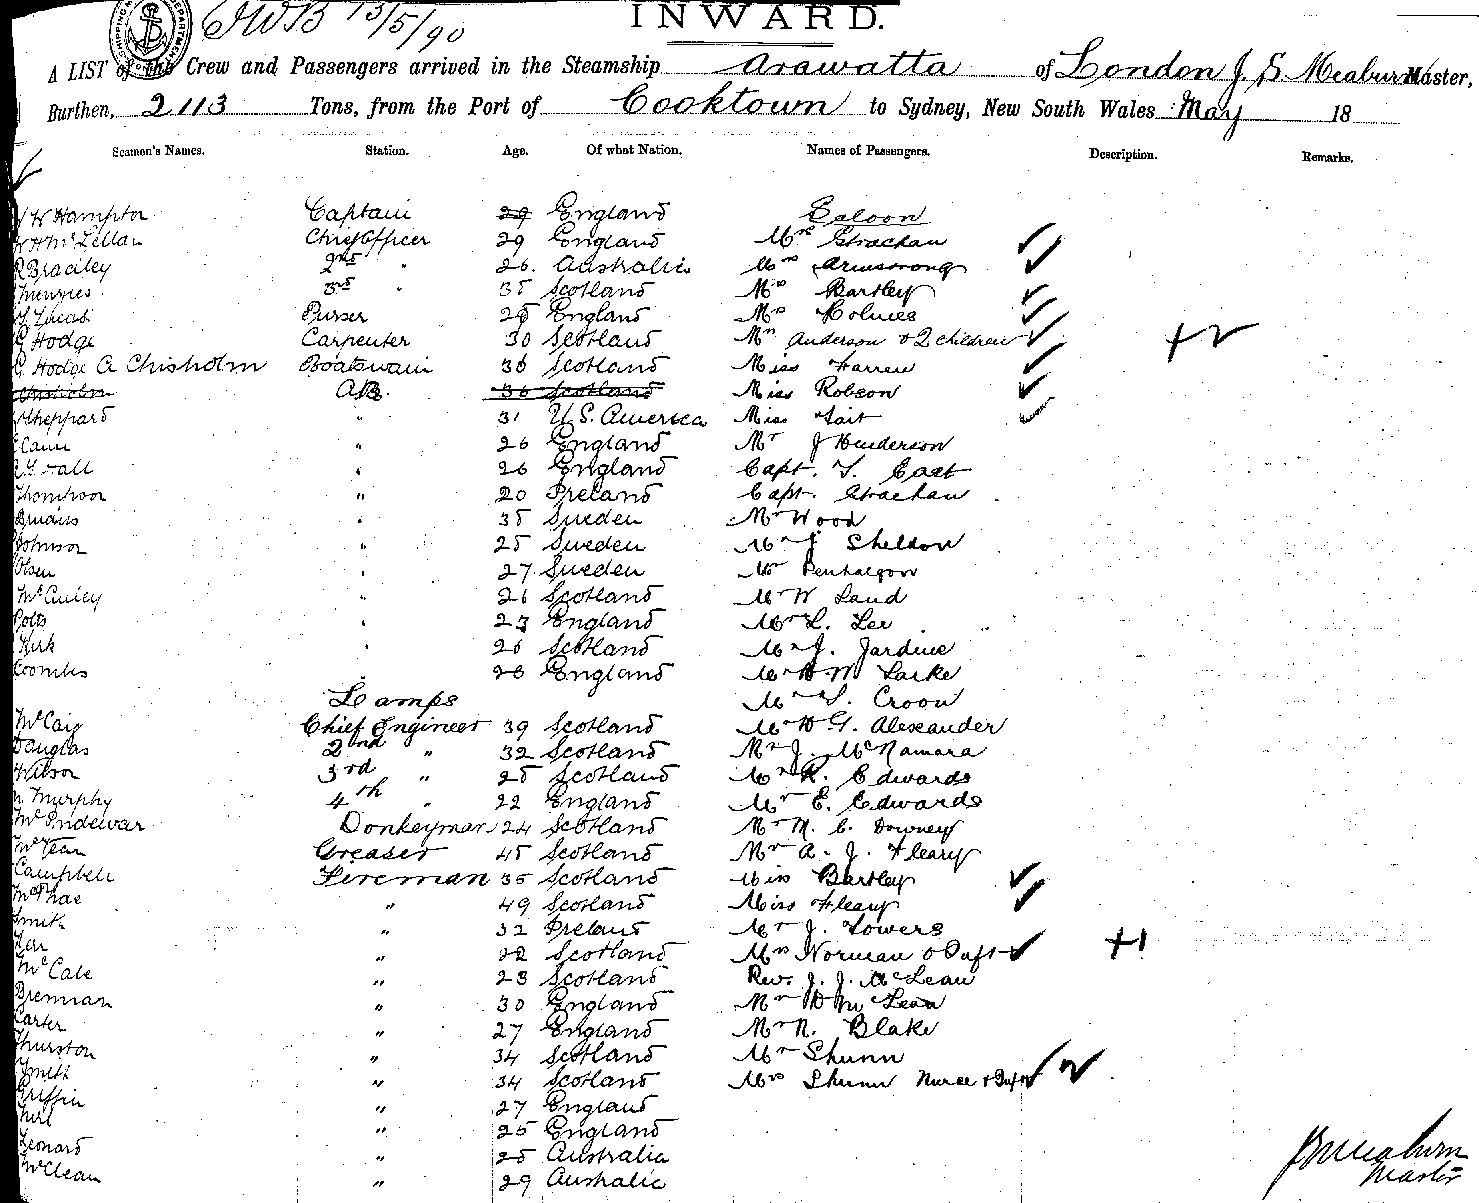 SHIPPING DEPARTMENT
13/5/90
INWARD.
A LIST of the Crew and Passengers arrived in the Steamship Arawatta of London J. S. Meaburn Master,
Burthen, 2113 Tons, from the Port of Cooktown to Sydney, New South Wales May 18
Seamen's Names. Station. Age. Of what Nation. Names of Passengers. Description. Remarks.
W Hampton Captain 29 England Saloon
McLellan Chief Officer 29 England Mrs Strachan
R Bradley 2nd " 26. Australia Mrs Armstrong
Menzies 3rd " 35 Scotland Mrs Bartley
Lucas Purser 25 England Mrs Holmes
G Hodge Carpenter 30 Scotland Mrs Anderson & 2 children + 2
G Hodge A Chisholm Boatswain 36 Scotland Miss Farren
Chisholm AB. 36 Scotland Miss Robson
Sheppard " 31 U.S. America Miss Tait
Cann " 26 England Mr J Henderson
" 26 England Capt. T. East
Thompson " 20 Ireland Capt. Strachan
" 35 Sweden Mr Wood
Johnson " 25 Sweden Mr J Sheldon
Olsen " 27 Sweden Mr Penhalgon
McAuley " 26 Scotland Mr W Laud
Potts " 23 England Mr L. Lee
Kirk " 26 Scotland Mr J. Jardine
Coombs " 26 England Mr W Larke
Lamps Mr S. Croon
McCaig Chief Engineer 39 Scotland Mr W G. Alexander
Douglas 2nd " 32 Scotland Mr J. McNamara
Wilson 3rd " 25 Scotland Mr R. Edwards
Murphy 4th " 22 England Mr E. Edwards
McIndewar Donkeyman 24 Scotland Mr M. C. Downey
McFean Greaser 45 Scotland Mr A. J. Fleary
Campbell Fireman 35 Scotland Miss Bartley
McPhae " 49 Scotland Miss Fleary
Smith " 32 Ireland Mr J. Towers
Kerr " 22 Scotland Mrs Norman & Inft + 1
McCabe " 23 Scotland Rev. J. J. McLean
Brennan " 30 England Mr D McLean
Carter " 27 England Mr N. Blake
Thurston " 34 Scotland Mr Shunn
Smith " 34 Scotland Mrs Shunn Nurse & Inft 2
Griffin " 27 England
" 25 England
Leonard " 25 Australia
McClean " 29 Australia
J S Meaburn
Master